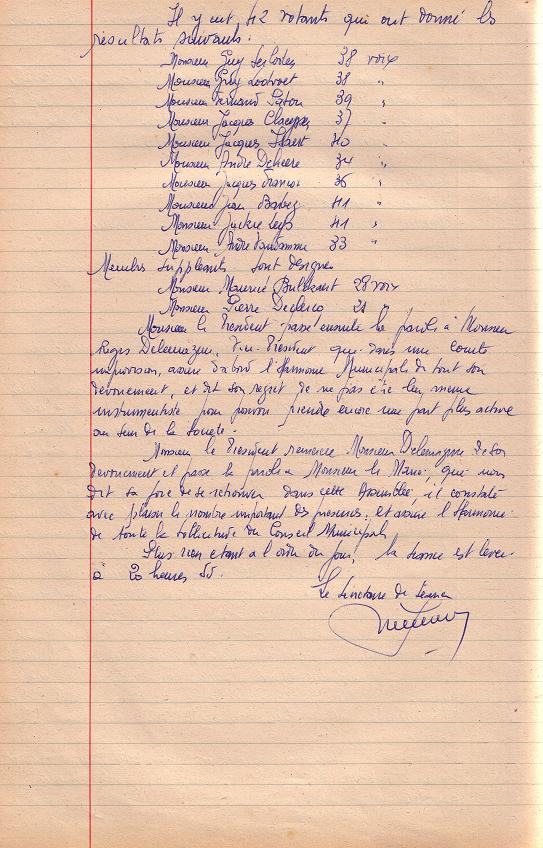 Il y eut 42 votants qui ont donné les
résultats suivants.
Monsieur Guy 38 voix
Monsieur Guy Lootvoet 38 "
Monsieur Fernand 39 "
Monsieur Jacques 37 "
Monsieur Jacques 40 "
Monsieur André 34 "
Monsieur Jacques François 36 "
Monsieur Jean 41 "
Monsieur Jackie 41 "
Monsieur André Vandamme 33 "
Membres suppléants sont désignés
Monsieur Maurice 28 voix
Monsieur Pierre Declercq "
Monsieur le Président passe ensuite la parole à Monsieur
Régis Delemazure, Vice-Président qui dans une courte
improvision, assure d'abord l'Harmonie Municipale de tout son
dévouement, et dit son regret de ne pas être lui même
instrumentiste pour pouvoir prendre encore une part plus active
au sein de la société.
Monsieur le Président remercie Monsieur Delemazure de son
dévouement et passe la parole à Monsieur le Maire, qui nous
dit sa joie de se retrouver dans cette Assemblée, il constate
avec plaisir le nombre important des présences, et assure l'Harmonie
de toute la sollicitude du Conseil Municipal.
Plus rien étant à l'ordre du jour, la séance est levée
à 20 heures 55.
Le Secrétaire de Séance